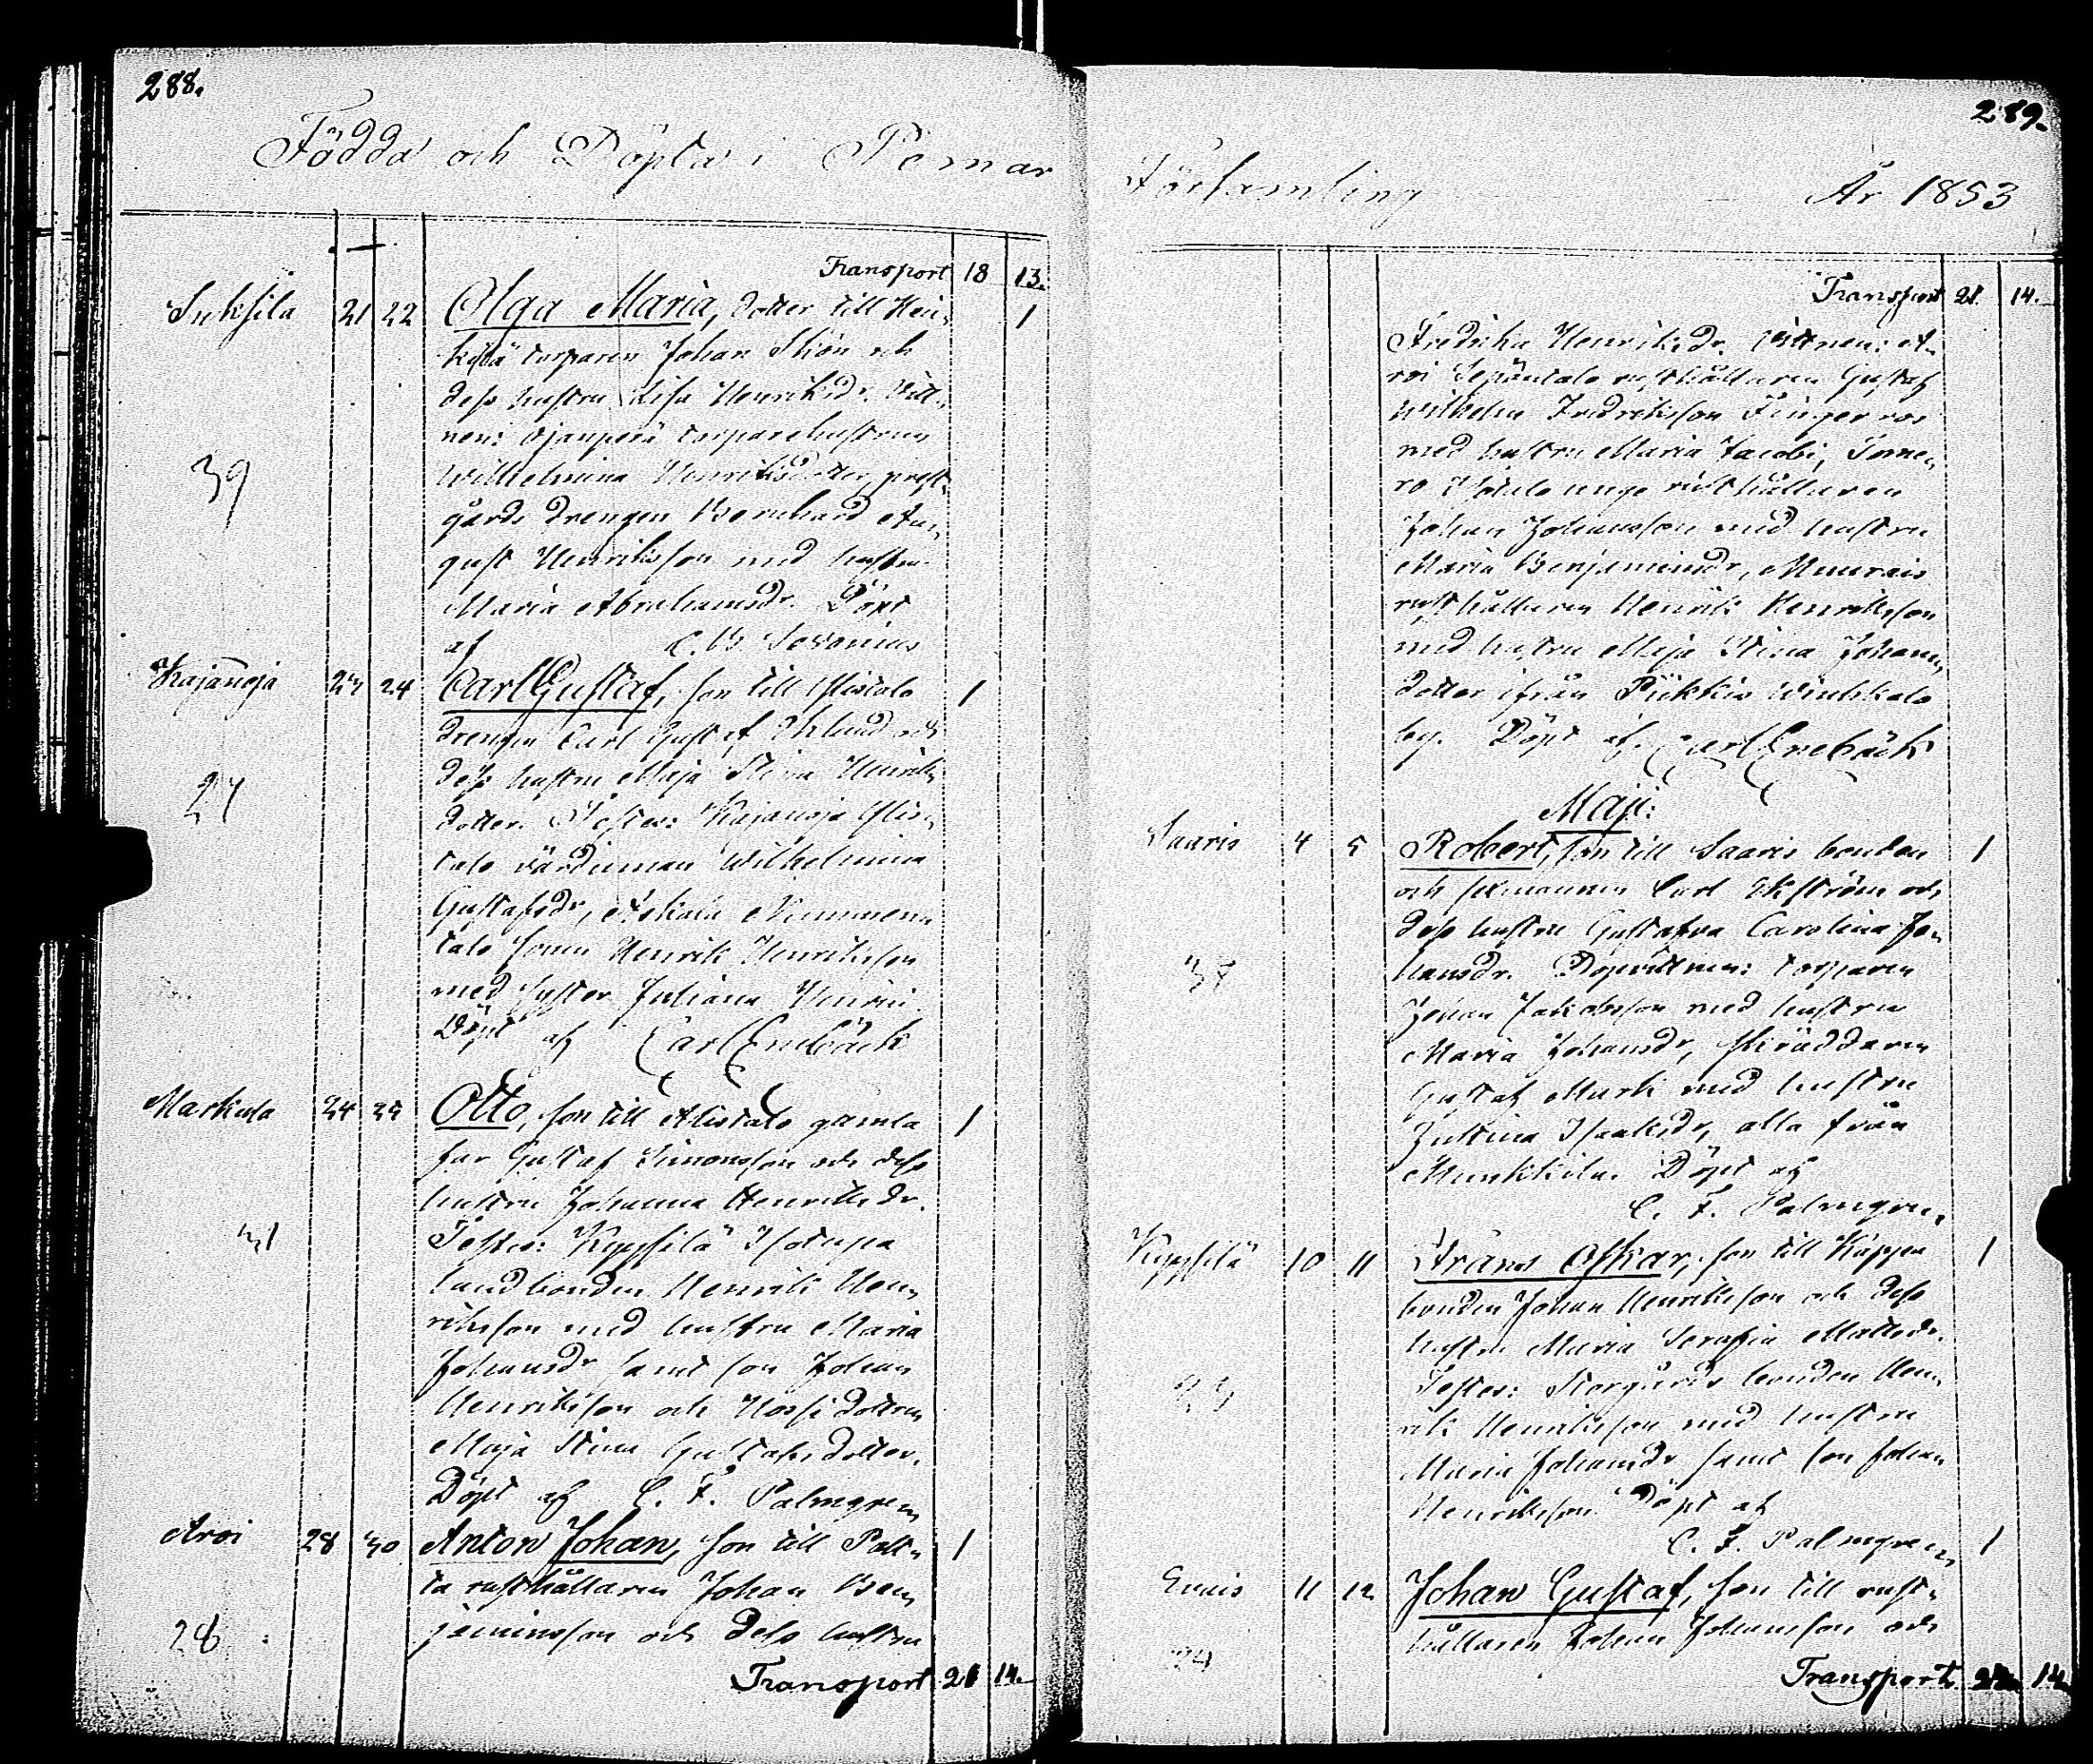 288.
Födda och Döpta i Pemar
Transport 18 13.
Suksila 21 22 Olga Maria, dotter till Hei-
torparen Johan Skön och
dess hustru Lisa Henriksdr. Vitt-
nen: Ojanperä torparehustrun
39 Wilhelmina Henriksdotter, prest-
gårds drengen Bernhard Au-
gust Henriksson med hustru
Maria Abrahamsdr. Döpt
af C. G.
Kajanoja 23 24 Carl Gustaf, son till Ylistalo 1
drengen Carl Gustaf Eklund och
27 dess hustru Maja Stina Henriks-
dotter. Testes: Kajanoja Ylis-
talo värdinnan Wilhelmina
Gustafsdr, Askala Nummen-
talo sonen Henrik Henriksson
med syster Juliana Henrici.
Döpt af Carl Enebäck
Markula 24 25 Otto, son till Alistalo gamla 1
far Gustaf Simonsson och dess
hustru Johanna Henriksdr.
31 Testes: Keppsilä Isotupa
landbonden Henrik Hen-
riksson med hustru Maria
Johansdr samt son Johan
Henriksson och Hossi dottren
Maja Stina Gustafsdotter.
Döpt af C. F. Palmgren
Arvi 28 30 Anton Johan, son till Pelt- 1
ta rusthållaren Johan Ben-
28 jaminsson och dess hustru
Transport 21 14.
289.
Församling År 1853
Transport 21. 14.
Fredrika Henriksdr. Vittnen: Ar-
vi Sepäntalo rusthållaren Gustaf
Wilhelm Fredriksson Finger
med hustru Maria Jacobi,
unge rusthållaren
Johan Johansson med hustru
Maria Benjaminsdr,
rusthållaren Henrik Henriksson
med hustru Maja Stina Johans-
dotter ifrån Pikkis
by. Döpt af. Carl Enebäck
Maji:
Saaris 4 5 Robert, son till Saaris bonden 1
och sexmannen Carl Ekström och
dess hustru Gustafva Carolina Jo-
37 hansdr. Dopvittnen: torparen
Johan Jakobsson med hustru
Maria Johansdr, skräddaren
Gustaf Mark med hustru
Justina Isaksdr, alla från
Munkkila. Döpt af
C. F. Palmgren.
Keppsilä 10 11 Frans Oskar, son till Käppä 1
bonden Johan Henriksson och dess
hustru Maria Serafia Mattsdr.
25 Testes: Storgårds bonden Hen-
rik Henriksson med hustru
Maria Johansdr samt son Johan
Henriksson. Döpt af
C. F. Palmgren 1
Evais 11 12 Johan Gustaf, son till rust-
24 hållaren Johan Johansson och
Transport 14